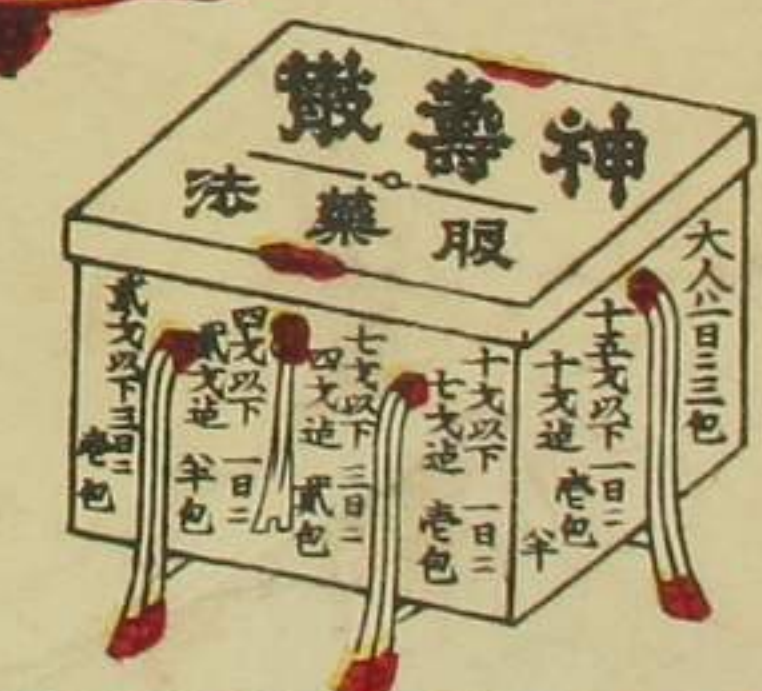 神壽散
服藥法
大人ハ一日ニ三包
十五才以下 一日ニ
十才迠 壱包
半
十才以下 一日ニ
七才迠 壱包
七才以下 三日ニ
四才迠 貳包
四才以下 一日ニ
貳才迠 半包
貳才以下三日ニ
壱包